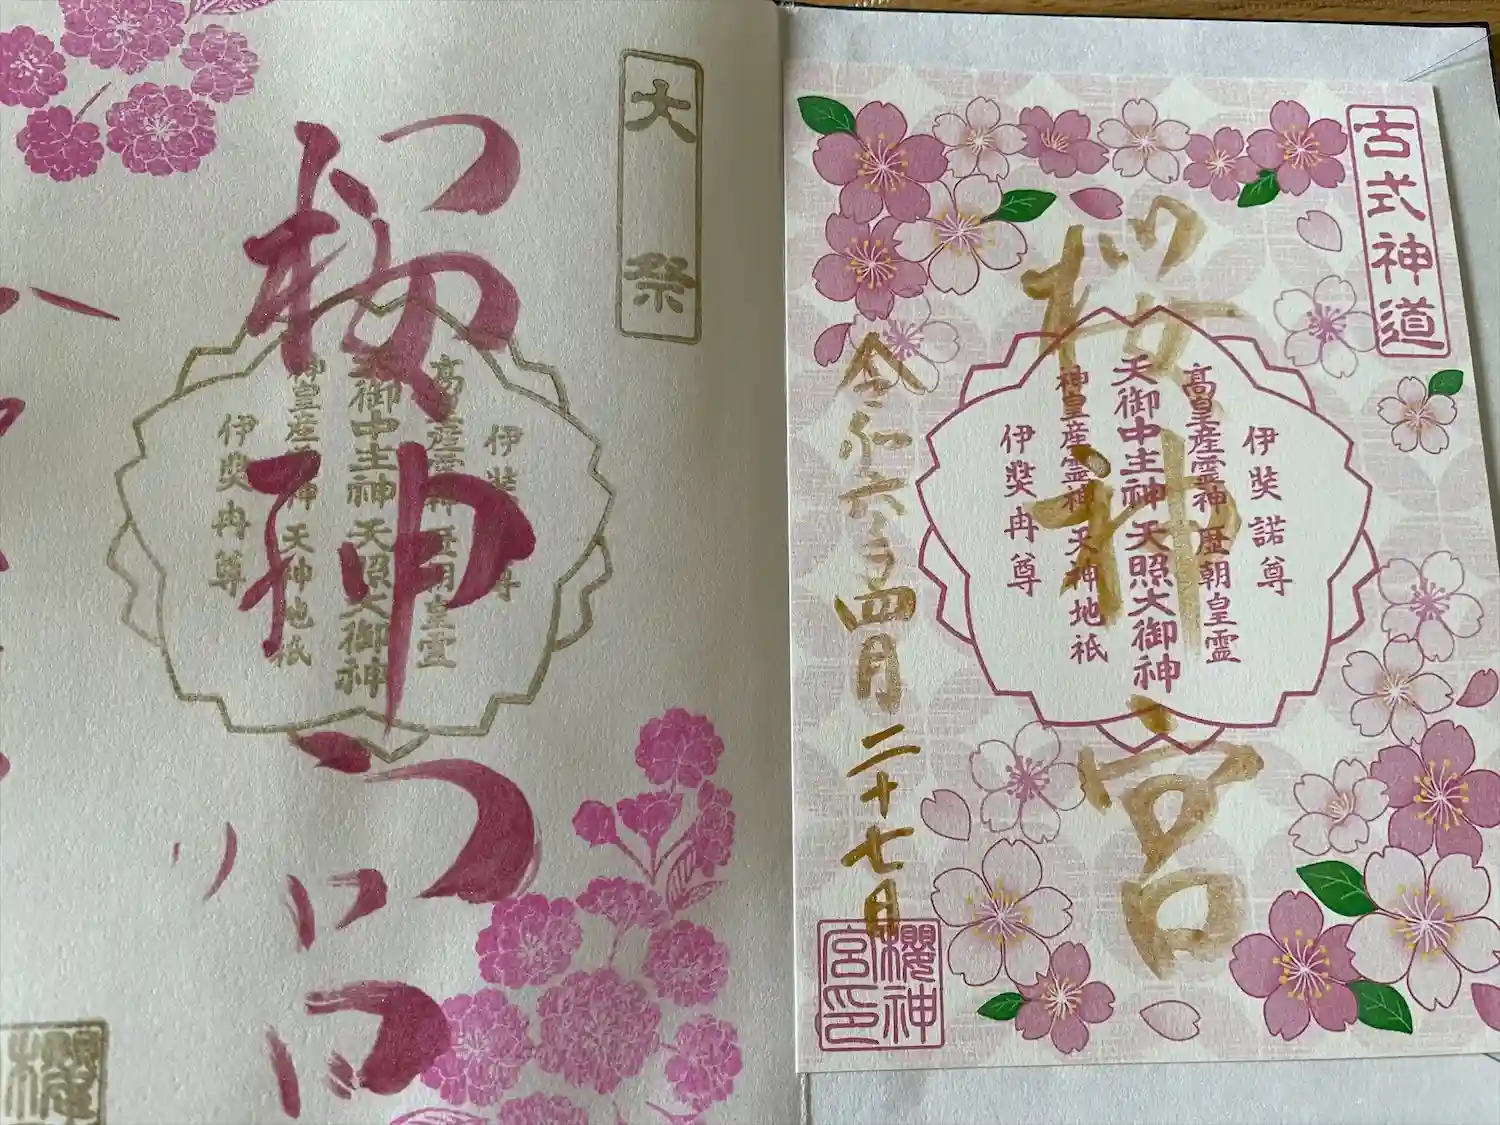 大祭
桜神宮
伊奘
尊
高皇産霊神 歴朝皇霊
天御中主神 天照大御神
神皇産霊神 天神地祇
伊奘冉尊
櫻
古式神道
桜神宮
伊奘諾尊
高皇産霊神 歴朝皇霊
天御中主神 天照大御神
神皇産霊神 天神地祇
伊奘冉尊
令和六年四月二十七日
櫻神
宮印